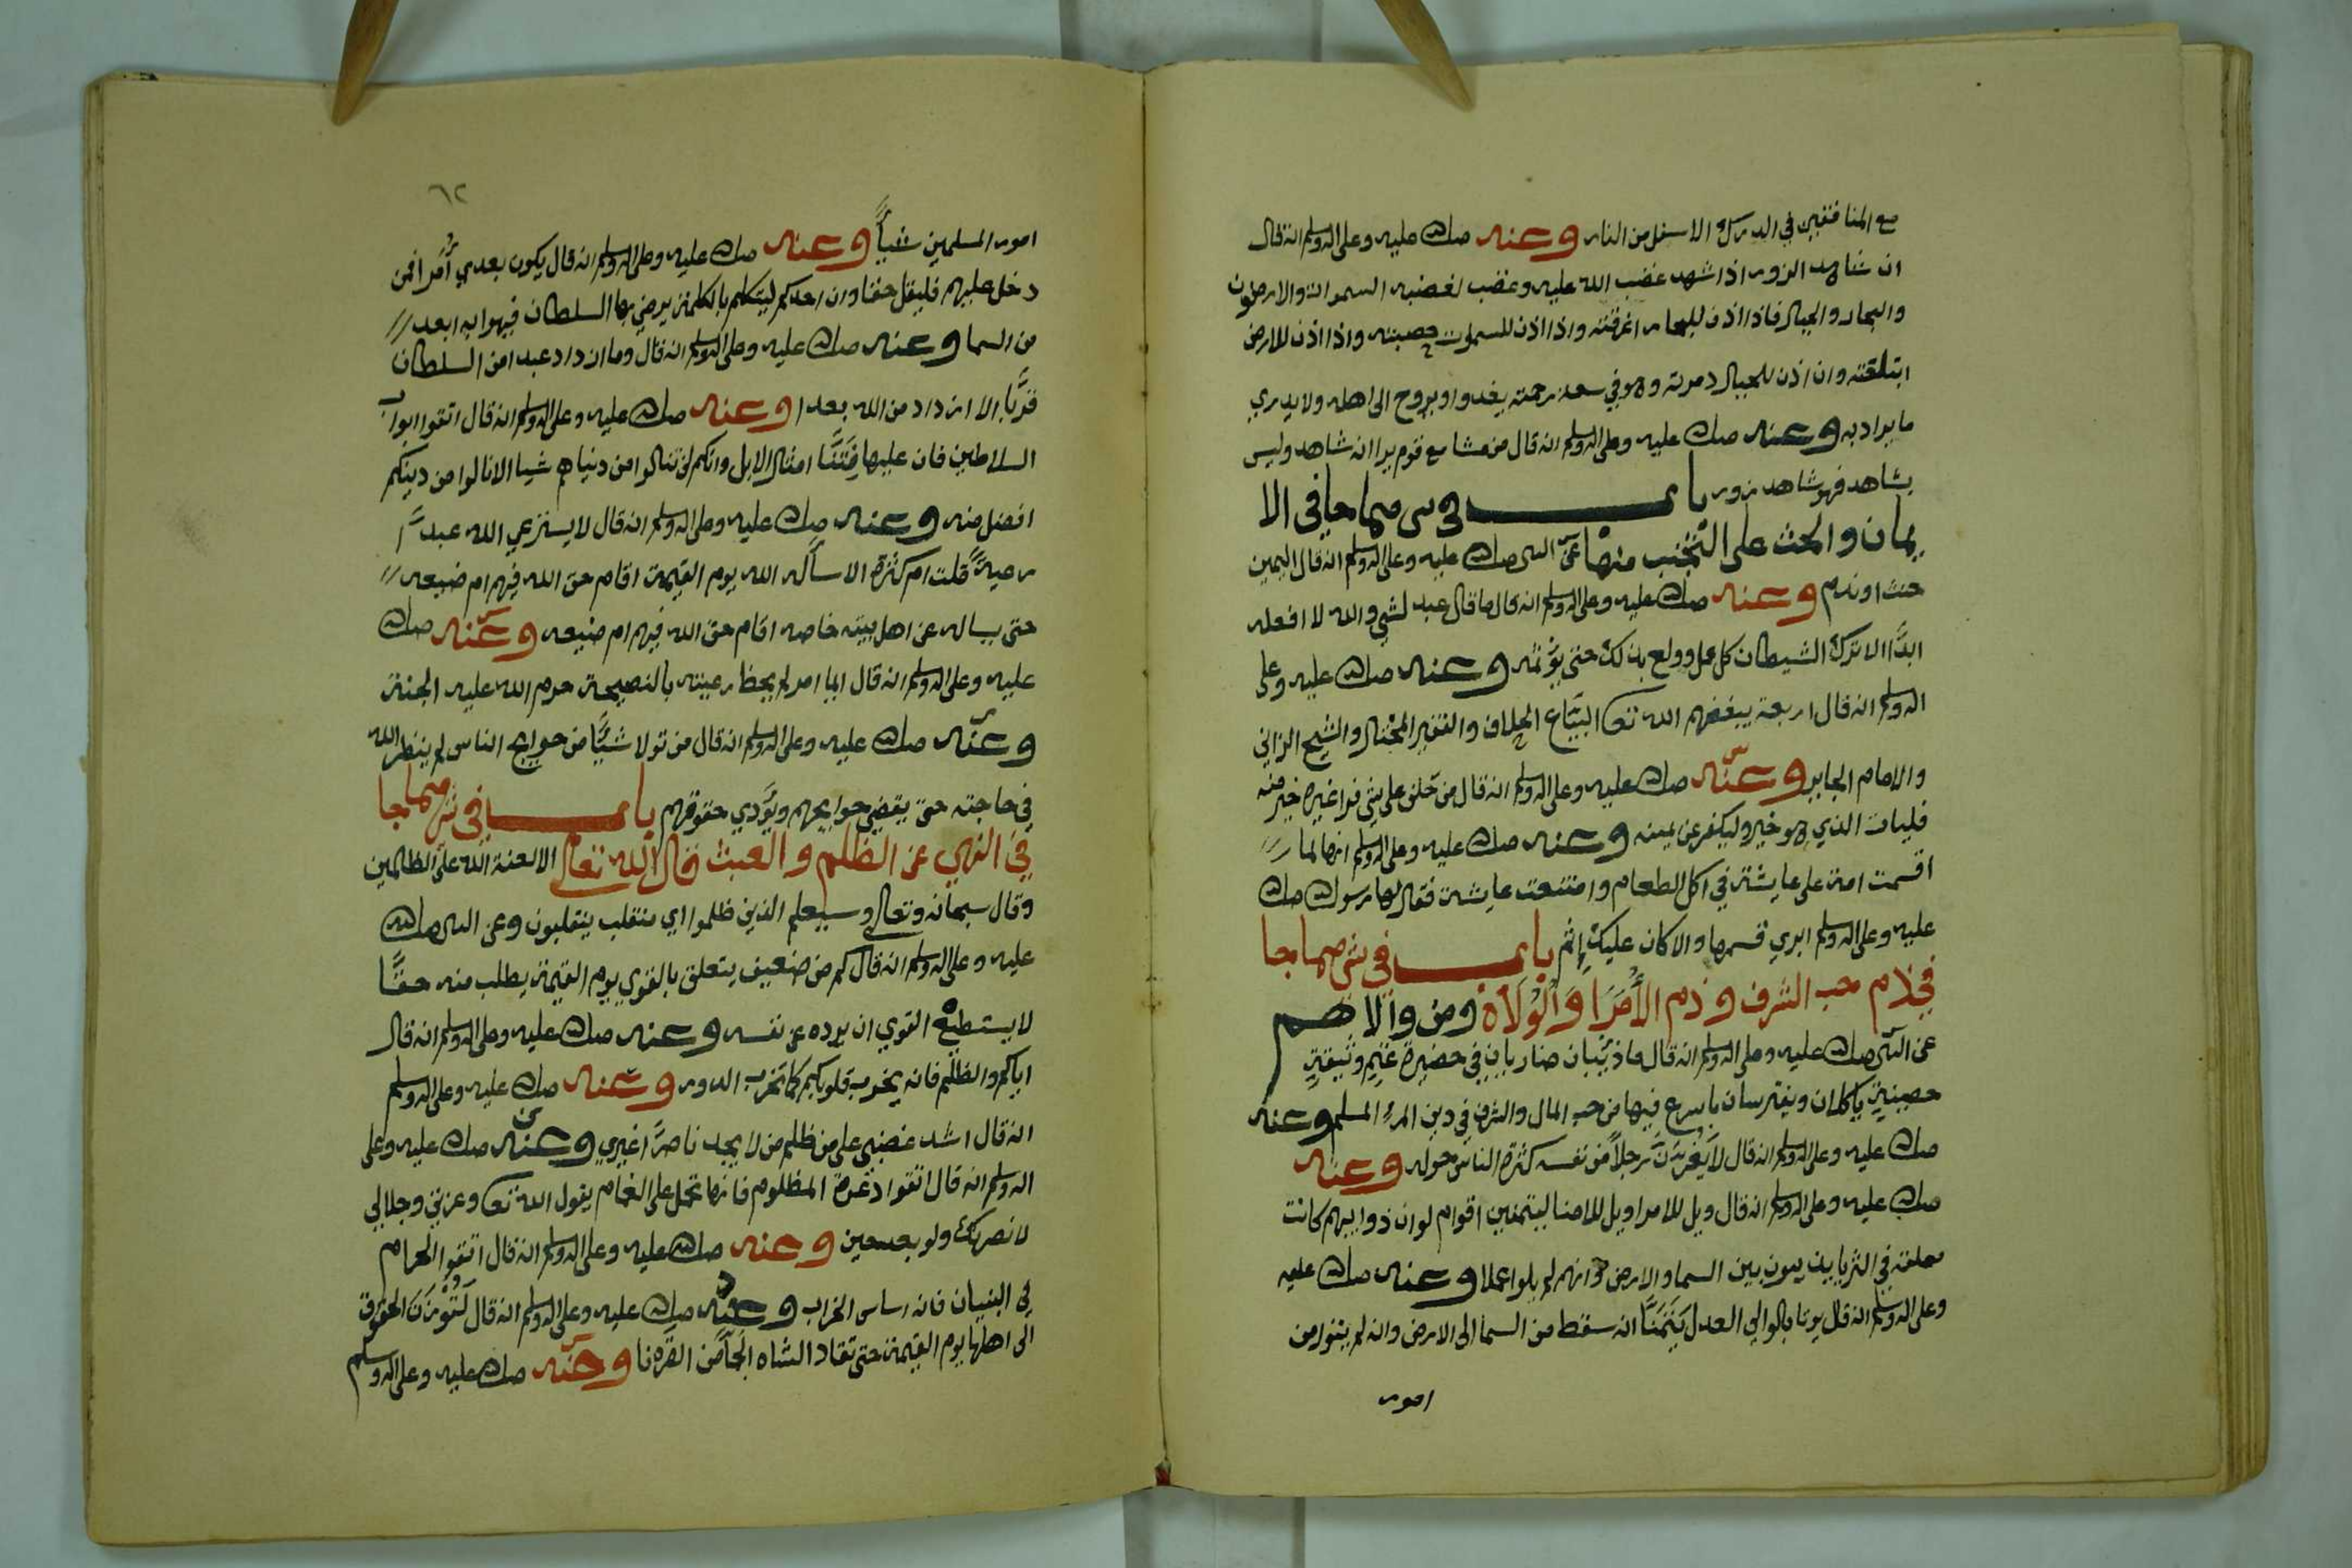 مع المنافقين في الدرك الاسفل من النار وعنه صلى الله عليه وعلى اله وسلم انه قال
ان شاهد الزور اذا شهد غضب الله عليه وغضب لغضبه السموات والارضون
والبحار والجبال فاذا اذن للبحار اغرقته واذا اذن للسموات حصبته واذا اذن للارض
ابتلعته وان اذن للجبال دمرته وهو في سعة رحمته يغدوا ويروح الى اهله ولا يدري
ما يراد به وعنه صلى الله عليه وعلى اله وسلم انه قال من مشا مع قوم يرا انه شاهد وليس
بشاهد فهو شاهد زور باب في شي مما جا في الا
يمان والحث على التجنب منها عن النبي صلى الله عليه وعلى اله وسلم انه قال اليمين
حنث او ندم وعنه صلى الله عليه وعلى اله وسلم انه قال ما قال عبد لشي والله لا افعله
ابدًا الا ترك الشيطان كل عمل وولع بذلك حتى يؤثمه وعنه صلى الله عليه وعلى
اله وسلم انه قال اربعة يبغضهم الله تعا البيّاع الحلاف والفقير المختال والشيخ الزاني
والامام الجاير وعنه صلى الله عليه وعلى اله وسلم انه قال من حلف على شي فرا غيره خير منه
فليات الذي هو خير وليكفر عن يمينه وعنه صلى الله عليه وعلى اله وسلم انها لما
اقسمت امة على عايشة في اكل الطعام وامتنعت عايشة فقال لها رسول الله صلى الله
عليه وعلى اله وسلم ابري قسمها والا كان عليك إثم باب في شي مما جا
في ذم حب الشرف وذم الأمرا والولاة ومن والاهم
عن النبي صلى الله عليه وعلى اله وسلم انه قال ما ذئبان ضاريان في حضيرة غنم وثيقة
حصينة ياكلان ويفترسان باسرع فيها من حب المال والشرف في دين المرء المسلم وعنه
صلى الله عليه وعلى اله وسلم انه قال لا يغرنّ رجلاً من نفسه كثرة الناس حوله وعنه
صلى الله عليه وعلى اله وسلم انه قال ويل للامرا ويل للامنا ليتمنين اقوام لو ان ذوايبهم كانت
معلقة في الثريا بين السما والارض وانهم لم يلوا عملا وعنه صلى الله عليه
وعلى اله وسلم انه قال يوتا بالوالي العدل يتمنا انه سقط من السما الى الارض وانه لم يتول من
امور
٦٢
امور المسلمين شيئاً وعنه صلى الله عليه وعلى اله وسلم انه قال يكون بعدي أمرا فمن
دخل عليهم فليقل حقا وان احدكم ليتكلم بالكلمة يرضي بها السلطان فيهوا به ابعد
من السما وعنه صلى الله عليه وعلى اله وسلم انه قال وما ازداد عبد من السلطان
قربًا الا ازداد من الله بعدا وعنه صلى الله عليه وعلى اله وسلم انه قال اتقوا ابواب
السلاطين فان عليها فتنًا امثال الابل وانكم لن تنالوا من دنياهم شيا الا نالوا من دينكم
افضل منه وعنه صلى الله عليه وعلى اله وسلم انه قال لا يسترعي الله عبدًا
رعيةً قلت ام كثرة الا سأله الله يوم القيمة اقام حق الله فيهم ام ضيعه
حتى يساله عن اهل بيته خاصه اقام حق الله فيهم ام ضيعه وعنه صلى الله
عليه وعلى اله وسلم انه قال ايما امر لم يحط رعيته بالنصيحة حرم الله عليه الجنة
وعنه صلى الله عليه وعلى اله وسلم انه قال من تولا شيئًا من حوايج الناس لم ينظر الله
في حاجته حتى يقضي حوايجهم ويؤدي حقوقهم باب في شي مما جا
في النهي عن الظلم والعبث قال الله تعالى الا لعنة الله على الظالمين
وقال سبحانه وتعالى وسيعلم الذين ظلموا اي منقلب ينقلبون وعن النبي صلى الله
عليه وعلى اله وسلم انه قال كم من ضعيف يتعلق بالقوي يوم القيمة يطلب منه حقًّا
لا يستطيع القوي ان يرده عن نفسه وعنه صلى الله عليه وعلى اله وسلم انه قال
اياكم والظلم فانه يخرب قلوبكم كما تخرب الدور وعنه صلى الله عليه وعلى اله وسلم
انه قال اشد غضبي على من ظلم من لا يجد ناصرًا غيري وعنه صلى الله عليه وعلى
اله وسلم انه قال اتقوا دعوة المظلوم فانها تحمل على الغمام يقول الله تعا وعزتي وجلالي
لانصرنك ولو بعد حين وعنه صلى الله عليه وعلى اله وسلم انه قال اتقوا الحرام
في البنيان فانه اساس الخراب وعنه صلى الله عليه وعلى اله وسلم انه قال لتؤدن الحقوق
الى اهلها يوم القيمة حتى تقاد الشاه الجما من القرنا وعنه صلى الله عليه وعلى اله وسلم